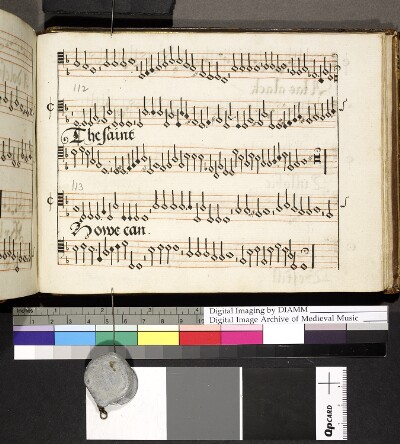 112
The saint
113
Howe can.
Digital Imaging by DIAMM
Digital Image Archive of Medieval Music
inches
QPCARD